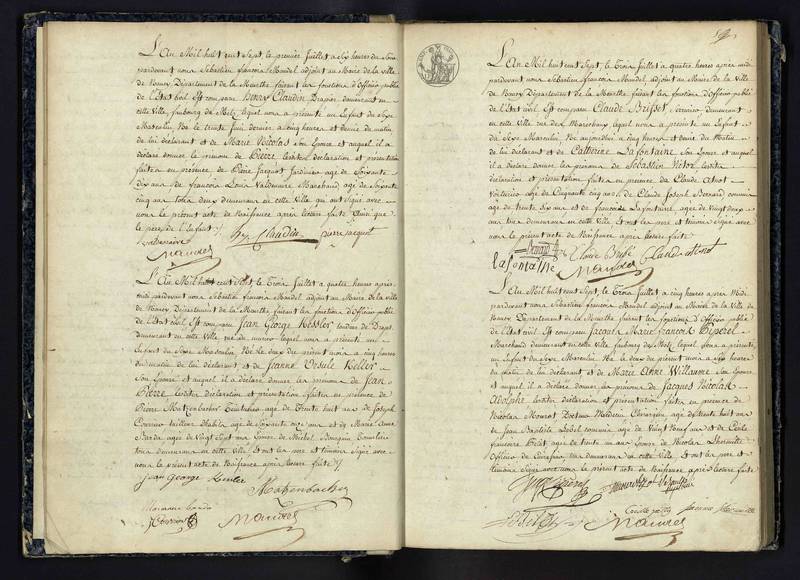 L'An Mil huit cent Sept, le premier Juillet a Six heures du Soir
pardevant nous Sébastien françois Mandel adjoint au Maire de la ville
de Nancy Département de la Meurthe faisant les fonctions d'Officier public
de l'Etat Civil Est comparu Henry Claudin Drapier demeurant en
cette Ville, faubourg de Metz lequel nous a présenté un Enfant du Sexe
Masculin Né le trente Juin dernier a cinq heures et demie du matin
de lui déclarant et de Marie Nicolas Son Epouse et auquel il a
déclaré donner le prénom de Pierre lesdites déclaration et présentation
faites en présence de Pierre Jacquot Jardinier agé de Soixante
dix ans de françois Louis Valdenaire Marchand agé de Soixante
cinq ans tous deux demeurant en cette Ville qui ont Signé avec
nous le présent acte de Naissance après lecture faite Ainsi que
le père de l'Enfant
hy Claudin pierre jacquot
Valdenaire
Mandel
L'An Mil huit cent Sept, le Trois Juillet a quatre heures après
midi pardevant nous Sébastien françois Mandel adjoint au Maire de la ville
de Nancy Département de la Meurthe faisant les fonctions d'Officier public
de l'Etat Civil Est comparu Jean George Kessler tondeur de Draps
demeurant en cette Ville rue du lequel nous a présenté un
Enfant du Sexe Masculin Né le deux du présent mois a cinq heures
du matin de lui déclarant et de Jeanne Ursule Keller
Son Epouse et auquel il a déclaré donner les prénoms de Jean
Pierre lesdites déclaration et présentation faites en présence de
Pierre Matzenbacher agé de Trente huit ans de Joseph
tailleur d'habits agé de Soixante onze ans et de Marie Anne
Barda agée de Vingt Sept ans Epouse de Michel
tous demeurant en cette Ville Et ont les père et témoins Signé avec
nous le présent acte de Naissance après lecture faite
jean George Kessler
Matzenbacher
Marianne barda
Mandel
L'An Mil huit cent Sept, le Trois Juillet a quatre heures après midi
pardevant nous Sébastien françois Mandel adjoint au Maire de la Ville
de Nancy Département de la Meurthe faisant les fonctions d'Officier public
de l'Etat Civil Est comparu Claude Brisset demeurant
en cette Ville rue des Maréchaux lequel nous a présenté un Enfant
du Sexe Masculin Né aujourd'hui a cinq heures et demie du Matin
de lui déclarant et de Catherine Lafontaine Son Epouse et auquel
il a déclaré donner les prénoms de Sébastien Victor lesdites
déclaration et présentation faites en présence de Claude
Voiturier agé de Cinquante cinq ans de Claude Joseph Bernard commis
agé de trente Six ans et de françoise Lafontaine, agée de Vingt deux
ans tous demeurant en cette Ville Et ont les père et témoins Signé avec
nous le présent acte de Naissance après lecture faite
Bernard
lafontaine
Mandel
L'An Mil huit cent Sept, le Trois Juillet a cinq heures après Midi
pardevant nous Sébastien françois Mandel adjoint au Maire de la Ville de
Nancy Département de la Meurthe faisant les fonctions d'Officier public
de l'Etat Civil Est comparu Jacques Marie françois
Marchand demeurant en cette Ville faubourg de Metz lequel nous a présenté
un Enfant du Sexe Masculin Né le deux du présent mois a Six heures
du matin de lui déclarant et de Marie Anne Willaume Son Epouse
et auquel il a déclaré donner les prénoms de Jacques Nicolas
Adolphe lesdites déclaration et présentation faites en présence de
Nicolas Docteur Médecin Chirurgien agé de trente huit ans
de Jean Baptiste commis agé de Vingt Neuf ans et de Cécile
françoise agée de trente un ans Epouse de Nicolas
Officier de tous demeurant en cette Ville Et ont les père et
témoins Signé avec nous le présent acte de Naissance après lecture faite
Mandel